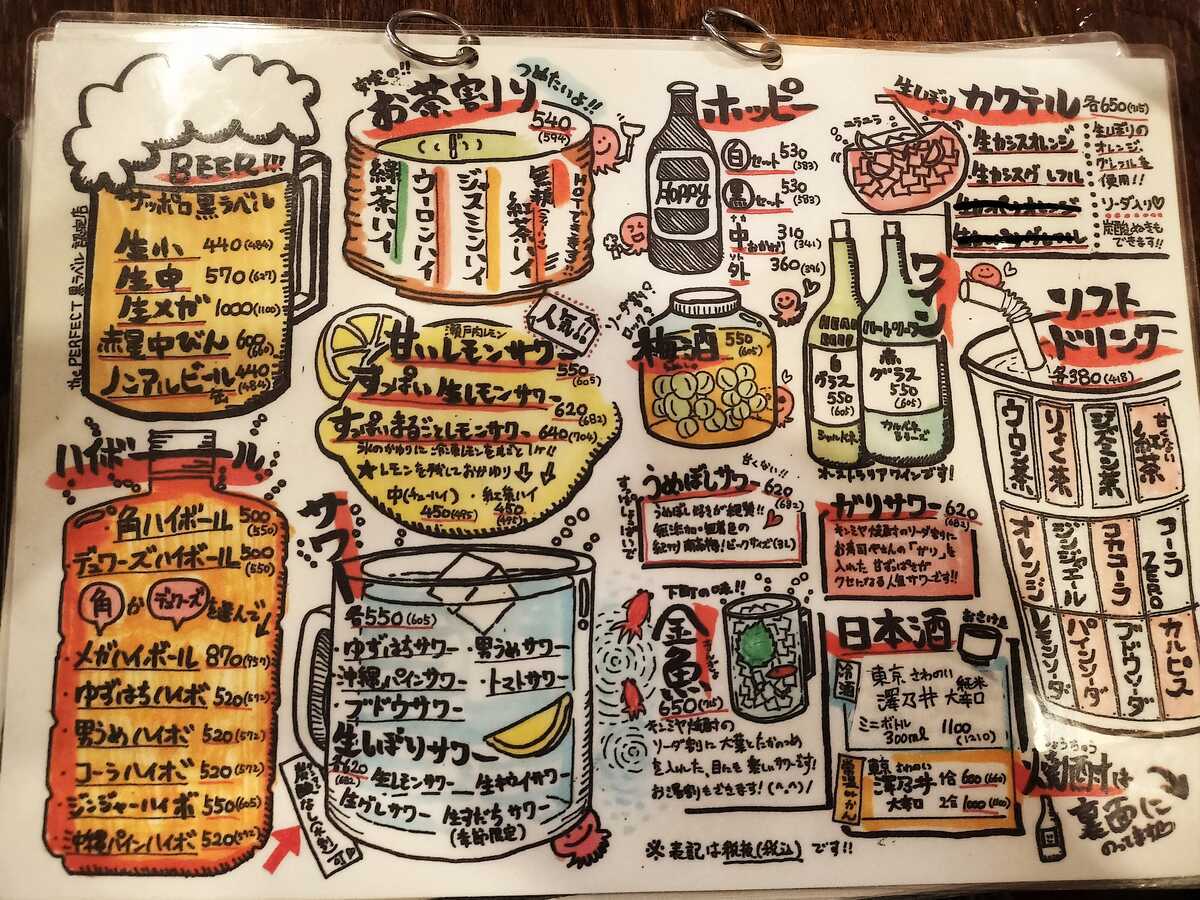 BEER!!!
サッポロ黒ラベル
生小 440(484)
生中 570(627)
生メガ 1000(1100)
赤星中びん 600(660)
ノンアルビール缶 440(484)
the PERFECT 黒ラベル
ハイボール
角ハイボール 500(550)
デュワーズハイボール 500(550)
角 か デュワーズ を選んで
・メガハイボール 870(957)
・ゆずはちハイボ 520(572)
・男うめハイボ 520(572)
・コーラハイボ 520(572)
・ジンジャーハイボ 550(605)
・沖縄パインハイボ 520(572)
お茶割り
つめたいよ!!
540(594)
緑茶ハイ
ウーロンハイ
ジャスミンハイ
紅茶ハイ
HOTできます!!
人気!!
瀬戸内レモン
甘いレモンサワー 550(605)
すっぱい生レモンサワー 620(682)
すっぱいまるごとレモンサワー 640(704)
氷のかわりに冷凍レモンを丸ごと1ケ!!
★レモンを残しておかわり
中(チューハイ) 450(495)
・紅茶ハイ 450(495)
サワー
各550(605)
・ゆずはちサワー
・男うめサワー
・沖縄パインサワー
・トマトサワー
・ブドウサワー
生しぼりサワー
各620(682)
生レモンサワー
生キウイサワー
生グレサワー
生すだちサワー
(季節限定)
ホッピー
Hoppy
白セット 530(583)
黒セット 530(583)
中 おかわり 310(341)
外 360(396)
ソーダ割り
ロック
梅酒 550(605)
生しぼり カクテル 各650(715)
・生カシスオレンジ
・生カシスグレフル
生しぼりの
オレンジ
グレフルを
使用!!
ソーダ入り♡
炭酸ぬきも
できます!!
ワイン
白
グラス
550
(605)
シャルドネ
ハートリーフ
赤
グラス
550
(605)
カルベネ
シラーズ
オーストラリアワインです!
うめぼしサワー 620(682)
甘くない!!
うめぼし好きが絶賛!!
無添加・無着色の
紀州南高梅!ビッグサイズ(3L)
ガリサワー 620(682)
キンミヤ焼酎のソーダ割りに
お寿司やさんの「ガリ」を
入れた 甘ずっぱさが
クセになる人気サワーです!!
下町の味!!
金魚
650(715)
キンミヤ焼酎の
ソーダ割に大葉とたかのつめ
を入れた、目にも楽しいサワーです!
お湯割りもできます!(^.^)/
日本酒
おさけ
冷酒
東京 さわのい
澤乃井 純米大辛口
ミニボトル 300ml 1100(1210)
常温 or あつかん
東京 さわのい
澤乃井 大辛口
1合 600(660)
2合 1000(1100)
ソフト
ドリンク
各380(418)
ウーロン茶
りょく茶
ジャスミン茶
甘くない紅茶
オレンジ
ジンジャエール
コカコーラ
コーラZERO
レモンソーダ
パインソーダ
ブドウソーダ
カルピス
しょうちゅう
焼酎は
裏面に
のってます♡
※表記は税抜(税込)です!!